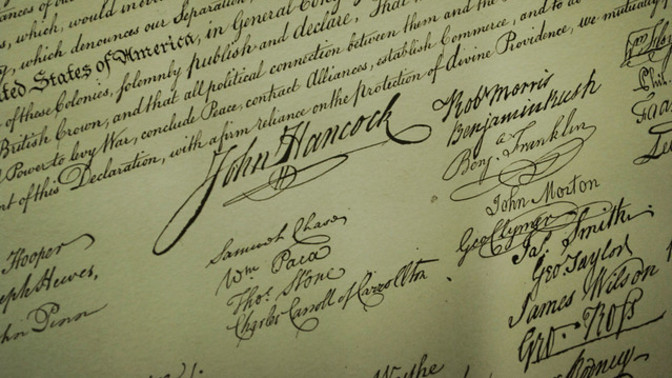 ances of our
s, which, would in
, which denounces our Separation,
ted States of America, in General Cong
of these Colonies, solemnly publish and declare, That
British Crown, and that all political connection between them and the
Power to levy War, conclude Peace, contract Alliances, establish Commerce, and to
nt of this Declaration, with a firm reliance on the protection of divine Providence, we mutually
John Hancock
Robt Morris
Benjamin Rush
Benja. Franklin
John Morton
Geo Clymer
Jas. Smith.
Geo. Taylor
James Wilson
Geo. Ross
Hooper
eph Hewes,
hn Penn
Samuel Chase
Wm. Paca
Thos. Stone
Charles Carroll of Carrollton
Wythe
Rodney
Phil.